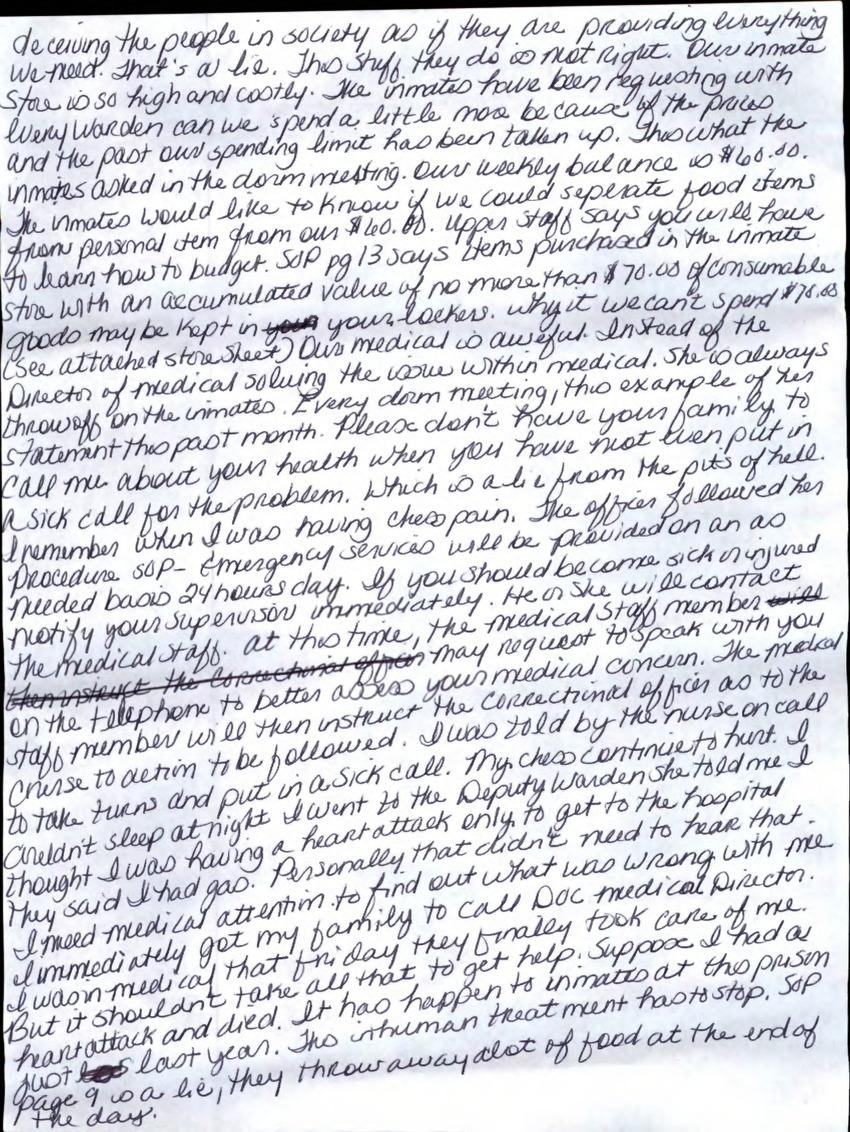 deceiving the people in society as if they are providing everything
we need. That's a lie. This stuff they do is not right. Our inmate
store is so high and costly. The inmates have been requesting with
every Warden can we spend a little more because of the prices
and the past our spending limit has been taken up. This what the
inmates asked in the dorm meeting. Our weekly balance is $60.00.
The inmates would like to know if we could seperate food items
from personal item from our $60.00. Upper staff says you will have
to learn how to budget. SOP pg 13 says items purchased in the inmate
store with an accumulated value of no more than $70.00 of consumable
goods may be kept in your your lockers. Why it we can't spend $70.00
(see attached store sheet) Our medical is aweful. Instead of the
Director of medical solving the issue within medical. She is always
throw off on the inmates. Every dorm meeting, this example of her
statement this past month. Please don't have your family to
call me about your health when you have not even put in
a sick call for the problem. Which is a lie from the pits of hell.
I remember when I was having chess pain. The officer followed her
procedure SOP- Emergency services will be provided on an as
needed basis 24 hours day. If you should become sick or injured
notify your supervisor immediately. He or she will contact
the medical staff. At this time, the medical staff member will
then instruct the correctional officer may request to speak with you
on the telephone to better assess your medical concern. The medical
staff member will then instruct the correctional officer as to the
course to action to be followed. I was told by the nurse on call
to take turns and put in a sick call. My chess continue to hurt. I
couldn't sleep at night I went to the Deputy Warden she told me I
thought I was having a heart attack only to get to the hospital
they said I had gas. Personally that didn't need to hear that.
I need medical attention to find out what was wrong with me
I immediately got my family to call Doc medical Director.
I was in medical that friday they finally took care of me.
But it shouldn't take all that to get help. Suppose I had a
heart attack and died. It has happen to inmates at this prison
just last year. This inhuman treatment has to stop. SOP
page 9 is a lie, they throw away alot of food at the end of
the day.